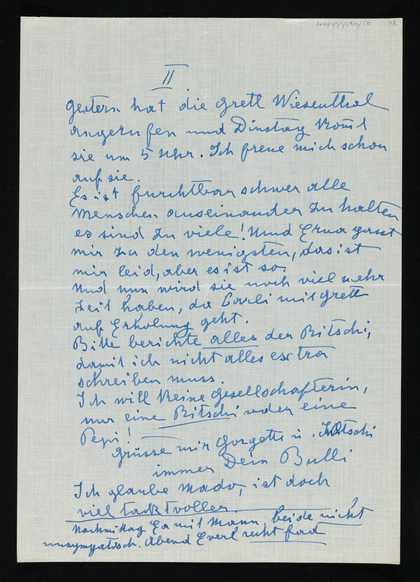 II
gestern hat die Gretl Wiesenthal
angerufen und Dinstag kommt
sie um 5 Uhr. Ich freue mich schon
auf sie.
Es ist furchtbar schwer alle
Menschen auseinander zu halten
es sind zu viele! Und Erna passt
mir zu den wenigsten, das ist
mir leid, aber es ist so.
Und nun wird sie noch viel mehr
Zeit haben, da Carli mit Gretl
auf Erholung geht.
Bitte berichte alles der Pitschi,
damit ich nicht alles extra
schreiben muss.
Ich will keine Gesellschafterin,
nur eine Pitschi oder eine
Pepi!
Grüsse mir Gorgette u.
immer Dein Bulli
Ich glaube Mado, ist doch
viel taktvoller.
Nachmittag Ea mit Mann, beide nicht
unsympatisch. Abend Everl recht fad